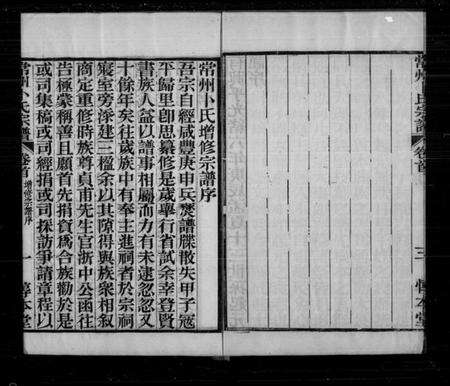 常州卜氏增修宗譜序
吾宗自經咸豐庚申兵燹譜牒散失甲子冦
平歸里卽思纂修是歲舉行省試余幸登賢
書族人益以譜事相屬而力有未逮忽忽又
十餘年矣往歲族中有奉主進祠者於宗祠
寢室旁深建三楹余以其隙得與族衆相叙
商定重修時族尊貞甫先生官浙中公函往
告極蒙稱善且願首先捐資為合族勸於是
或司集稿或司經捐或司採訪爭請章程以
常州卜氏宗譜
卷首
增修宗譜序
一
惇本堂
常州 氏宗譜
卷首
三
惇本堂